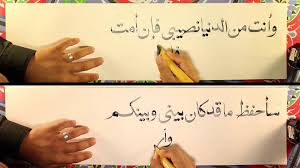 وأنت من الدنيا نصيبي فإن أمت
سأحفظ ما قد كان بيني وبينكم
وأر